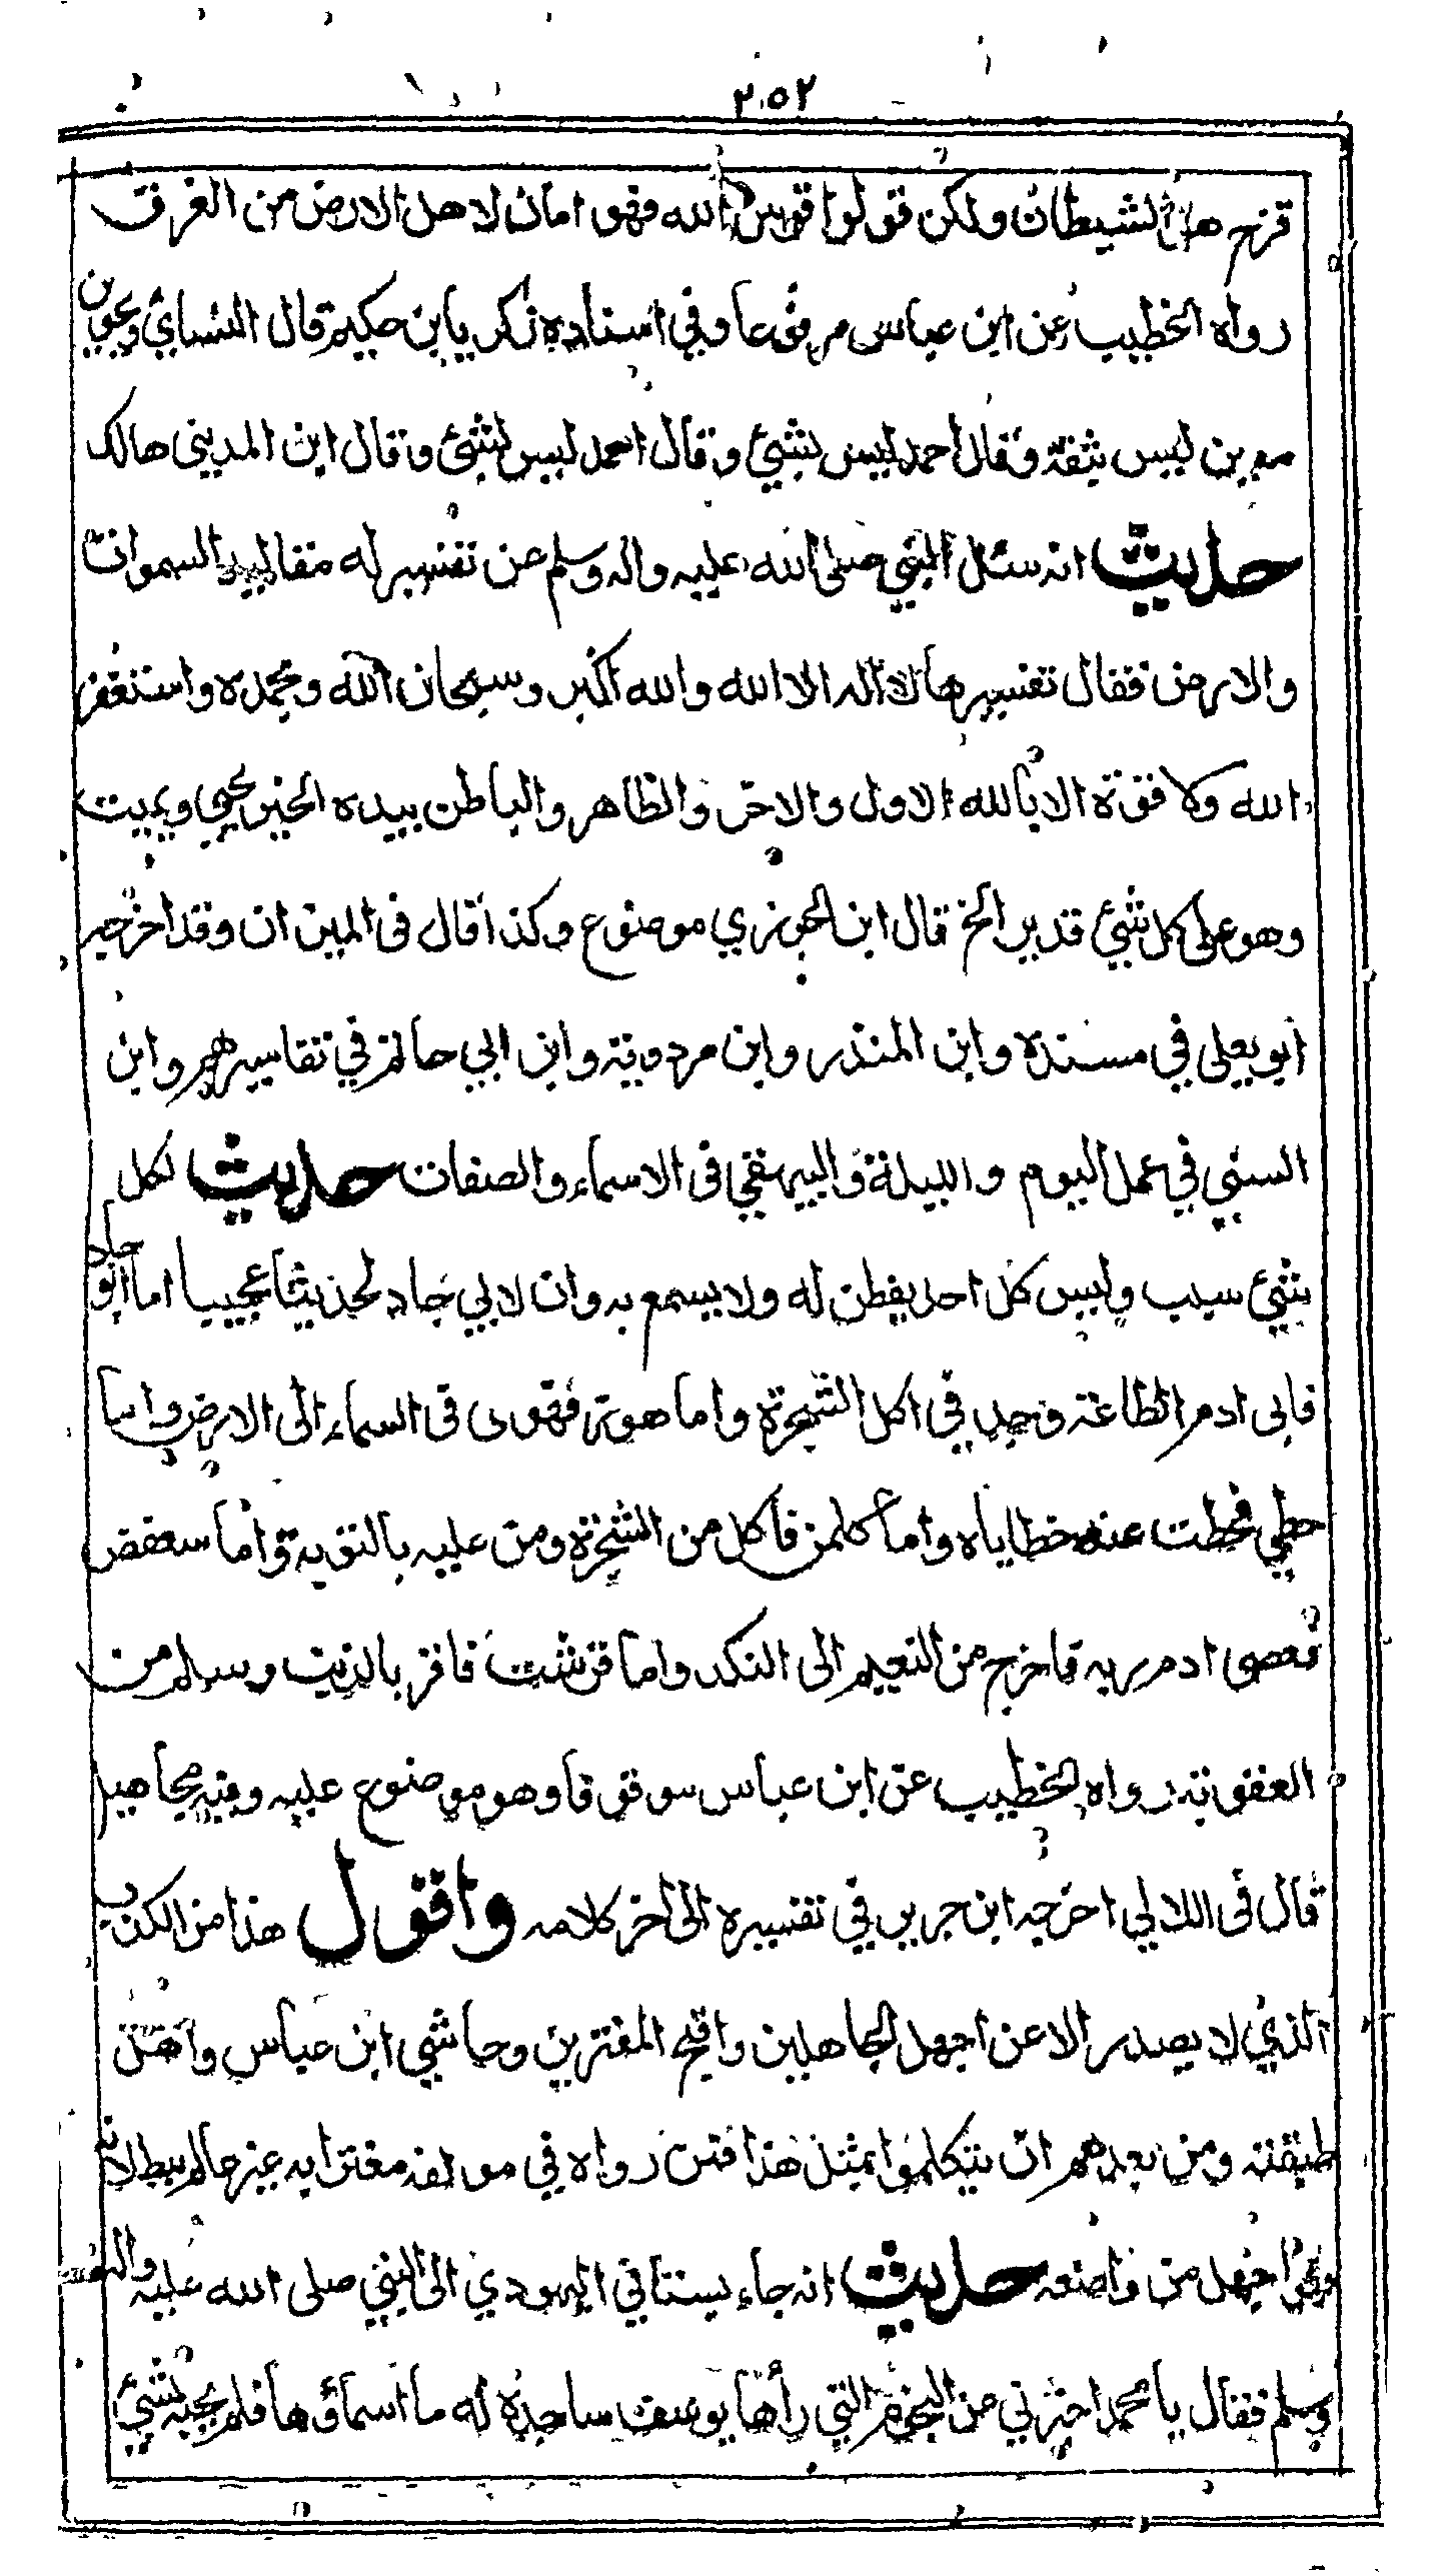 ٢٥٢
قزح هو الشيطان ولكن قولوا قوس الله فهو امان لاهل الارض من الغرق
رواه الخطيب عن ابن عباس مرفوعا وفي اسناده زكريا بن حكيم قال النسائي ويحيى بن
معين ليس بثقة وقال احمد ليس بشئ وقال احمد ليس بشئ وقال ابن المديني هالك
حديث انه سئل النبي صلى الله عليه واله وسلم عن تفسير له مقاليد السموات
والارض فقال تفسيرها لا اله الا الله والله اكبر وسبحان الله وبحمده واستغفر
الله ولا قوة الا بالله الاول والاخر والظاهر والباطن بيده الخير يحيي ويميت
وهو على كل شئ قدير الخ قال ابن الجوزي موضوع وكذا قال في الميزان وقد اخرجه
ابو يعلى في مسنده وابن المنذر وابن مردويه وابن ابي حاتم في تفاسيرهم وابن
السني في عمل اليوم والليلة والبيهقي في الاسماء والصفات حديث لكل
شئ سبب وليس كل احد يفطن له ولا يسمع به وان لابي جاد لحديثا عجيبا اما ابو جاد
فابى ادم الطاعة وجد في اكل الشجرة واما هوز فهوى في السماء الى الارض واما
حطي فحطت عنه خطاياه واما كلمن فاكل من الشجرة ومن عليه بالتوبة واما سعفص
فعصى ادم ربه فاخرج من النعيم الى النكد واما قرشت فاقر بالذنب وسلم من
العقوبة رواه الخطيب عن ابن عباس موقوفا وهو موضوع عليه وفيه مجاهيل
قال في اللالي اخرجه ابن جرير في تفسيره الى اخر كلامه واقول هذا من الكذب
الذي لا يصدر الا عن اجهل الجاهلين واقبح المفترين وحاشي ابن عباس واهل
طبقته ومن بعدهم ان يتكلموا بمثل هذا فمن رواه في مولفه مغترا به غير عالم ببطلانه
فهو اجهل من واضعه حديث انه جاء بستاني اليهودي الى النبي صلى الله عليه واله
وسلم فقال يا محمد اخبرني عن النجوم التي رأها يوسف ساجدة له ما اسماؤها فلم يجبه بشئ